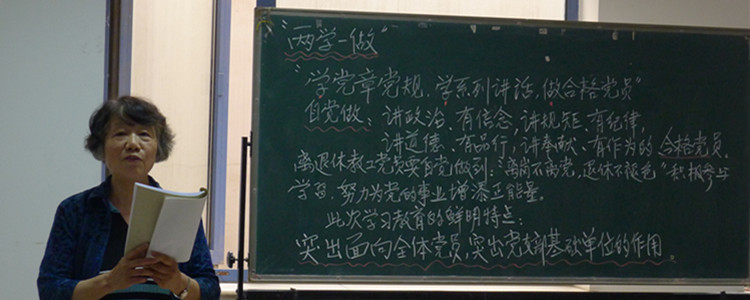 "两学一做"
"学党章党规,学系列讲话,做合格党员"
自觉做:讲政治、有信念,讲规矩、有纪律,
讲道德、有品行,讲奉献、有作为的合格党员.
离退休教工党员要自党做到:"离岗不离党,退休不褪色"积极参与
学习,努力为党的事业增添正能量.
此次学习教育的鲜明特点:
突出面向全体党员,突出党支部基础单位的作用